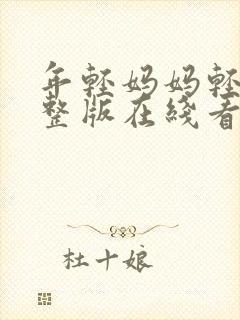 年轻妈妈轻
整版在线看
杜十娘